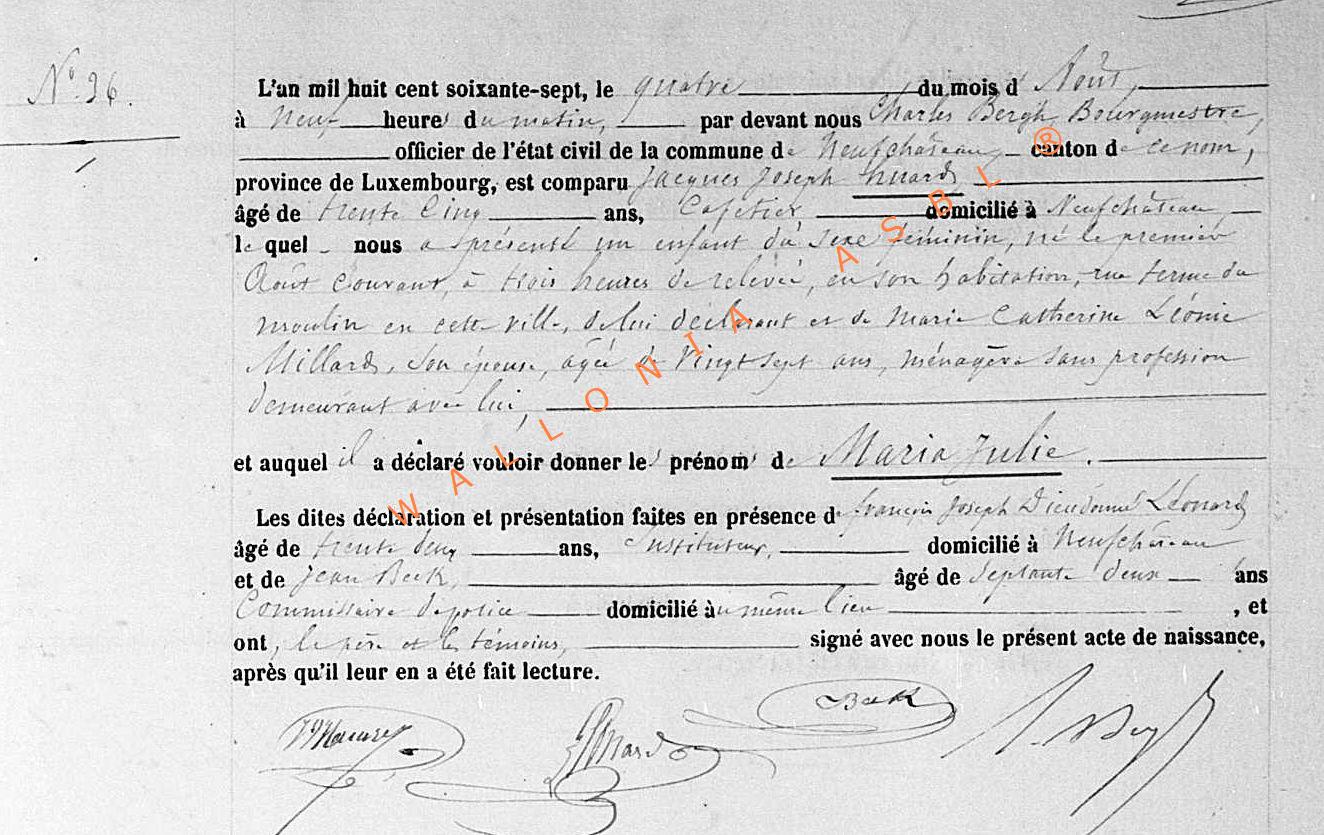 N° 36.
L'an mil huit cent soixante-sept, le quatre du mois d'Août,
à Neuf heures du matin, par devant nous Charles Bergh Bourgmestre,
officier de l'état civil de la commune de Neufchâteau, canton de ce nom,
province de Luxembourg, est comparu Jacques Joseph
âgé de trente cinq ans, Cafetier, domicilié à Neufchâteau,
lequel nous a présenté un enfant du sexe féminin, né le premier
Août courant, à trois heures de relevée, en son habitation, rue terme du
moulin en cette ville, de lui déclarant et de Marie Catherine Léonie
Millard, son épouse, agée de Vingt sept ans, ménagère sans profession
demeurant avec lui,
et auquel il a déclaré vouloir donner les prénoms de Maria Julie.
Les dites déclaration et présentation faites en présence de françois Joseph Dieudonné Léonard
âgé de trente deux ans, Instituteur, domicilié à Neufchâteau
et de Jean Beck, âgé de Septante deux ans
Commissaire de police domicilié au même lieu, et
ont, le père et les témoins, signé avec nous le présent acte de naissance,
après qu'il leur en a été fait lecture.
Beck
WALLONIA ASBL ®